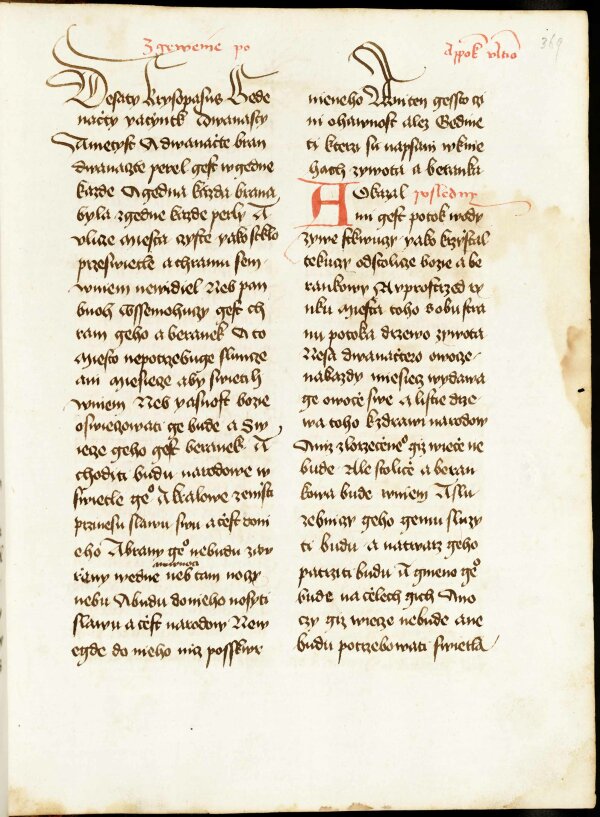 Zgewenie po
Appok ultio
369
Desaty krysopasus Gede
naċty yacynct dwanasty
Ametyst A dwanaċte bran
dwanaċte perel gest w gedne
kazde A gedna kazda brana
byla zgedne kazde perly A
ulice miesta czyste yako sklo
przeswietle a chramu sem
wniem newidiel Neb pan
buoh wssemohuczy gest ch
ram geho a beranek A to
miesto nepotrzebuge slunce
ani miesiece aby swietich
wniem Neb yasnost bozie
oswieczowati ge bude a Swi
ece geho gest beranek A
choditi budu narodowe w
swietle geº A kralowe zemssti
przinesu slawu swu a ċest doni
eho A brany geº nebudu zaw
rzieny wedne neb tam noczy
nebu A budu donieho nositi
slawu a ċest narodow New
egde do nieho niz posskwr
nieneho A niten gessto czi
ni ohawnost a lez Gedine
ti kterzi su napsani w knie
hach zywota a beranka
A Okazal posledny
mi gest potok wody
zywe stkwuczy yako krzystal
tekuczy odstolicze bozie a be
rankowy A vprostrzed ry
nku miesta toho s obu stra
nu potoka drzewo zywota
Nesa dwanaċtero owocze
nakazdy miesiecz wydawa
ge owoċe swe a listie drze
wa toho k zdrawi narodow
A niz zlorzeċeneº giz wiece ne
bude Ale stolice a beran
kowa bude wniem A slu
zebniczy geho gemu sluzy
ti budu A na twarz geho
patrziti budu A gmeno geº
bude na ċelech gich A no
czy giz wiecze nebude ane
budu potrzebowati swietla